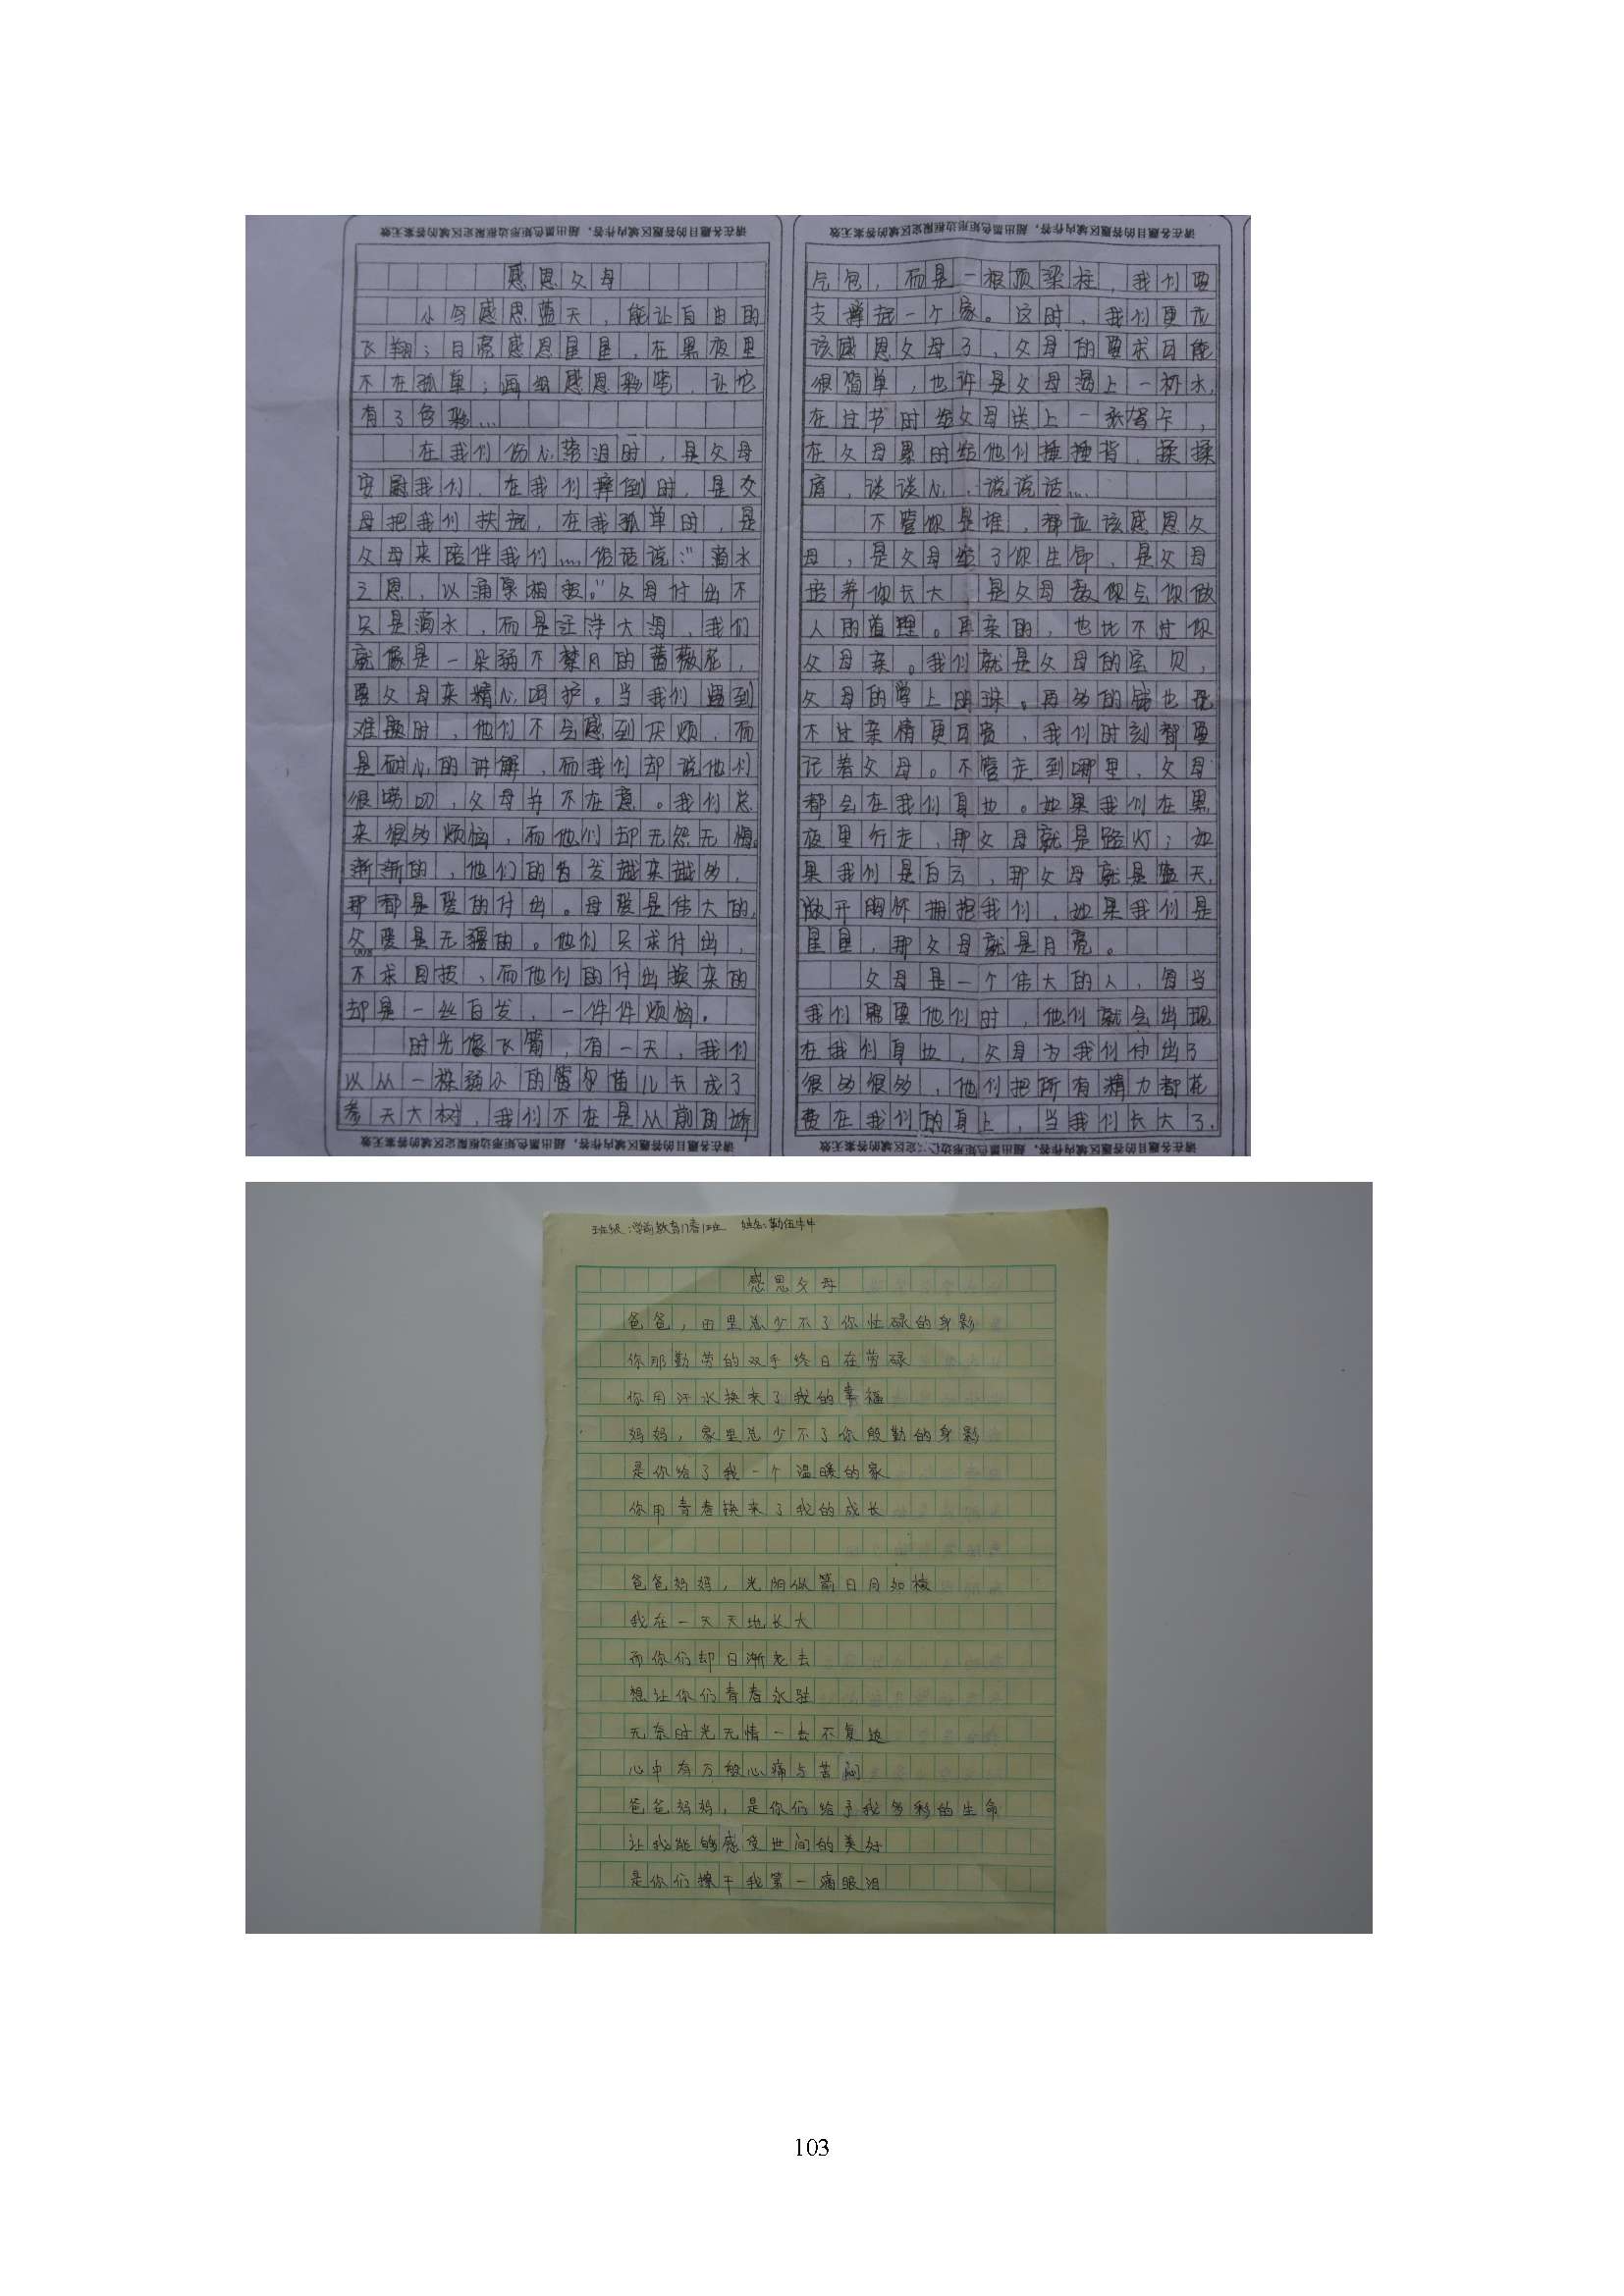 感恩父母
小鸟感恩蓝天，能让自由的
飞翔；月亮感恩星星，在黑夜里
不在孤单；画纸感恩彩笔，让它
有了色彩…
在我们伤心落泪时，是父母
安慰我们，在我们摔倒时，是父
母把我们扶起，在我孤单时，是
父母来陪伴我们…俗话说："滴水
之恩，以涌泉相报。"父母付出不
只是滴水，而是汪洋大海，我们
就像是一朵弱不禁风的蔷薇花，
要父母来精心呵护。当我们遇到
难题时，他们不会感到厌烦，而
是耐心的讲解，而我们却说他们
很唠叨，父母并不在意。我们总
来很多烦恼，而他们却无怨无悔。
渐渐的，他们的白发越来越多，
那都是爱的付出。母爱是伟大的，
父爱是无疆的。他们只求付出，
不求回报，而他们的付出换来的
却是一丝白发，一件件烦恼。
时光像飞箭，有一天，我们
以从一株弱小的苗儿长成了
参天大树，我们不在是从前的娇
气包，而是一根顶梁柱，我们要
支撑起一个家。这时，我们更应
该感恩父母了，父母的要求可能
很简单，也许是父母渴上一杯水，
在过节时给父母送上一张贺卡，
在父母累时给他们捶捶背，揉揉
肩，谈谈心，说说话…
不管你是谁，都应该感恩父
母，是父母给了你生命，是父母
培养你长大，是父母教你会你做
人的道理。再亲的，也比不过你
父母亲。我们就是父母的宝贝，
父母的掌上明珠。再多的钱也
不过亲情更可贵，我们时刻都要
记着父母。不管走到哪里，父母
都会在我们身边。如果我们在黑
夜里行走，那父母就是路灯；如
果我们是白云，那父母就是蓝天，
敞开胸怀拥抱我们，如果我们是
星星，那父母就是月亮。
父母是一个伟大的人，每当
我们需要他们时，他们就会出现
在我们身边，父母为我们付出了
很多很多，他们把所有精力都花
费在我们的身上，当我们长大了，
班级：学前教育17春1班 姓名：勒伍牛牛
感恩父母
爸爸，田里总少不了你忙碌的身影
你那勤劳的双手终日在劳碌
你用汗水换来了我的幸福
妈妈，家里总少不了你殷勤的身影
是你给了我一个温暖的家
你用青春换来了我的成长
爸爸妈妈，光阴似箭日月如梭
我在一天天地长大
而你们却日渐老去
想让你们青春永驻
无奈时光无情一去不复返
心中有万般心痛与苦闷
爸爸妈妈，是你们给予我多彩的生命
让我能够感受世间的美好
是你们擦干我第一滴眼泪
103